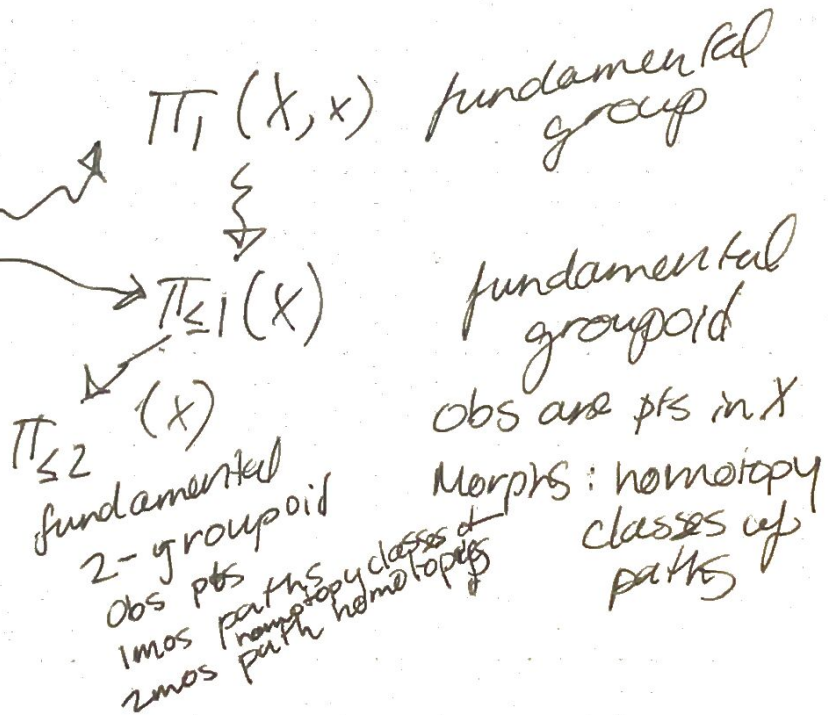 π₁ (X, x) fundamental
group
π≤1 (X) fundamental
groupoid
Obs are pts in X
Morphs : homotopy
classes of
paths
π≤2 (X)
fundamental
2-groupoid
Obs pts
1mos paths
2mos homotopy classes of
path homotopies